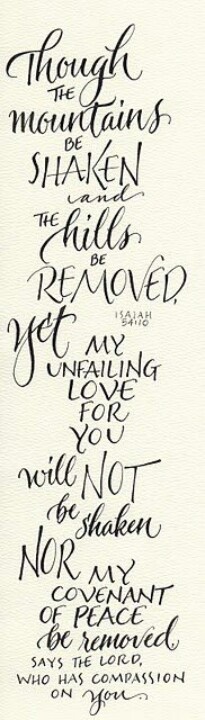 Though
THE
mountains
BE
SHAKEN
and
THE hills
BE
REMOVED,
ISAIAH
54:10
yet MY
UNFAILING
LOVE
FOR
YOU
will NOT
be shaken
NOR MY
COVENANT
OF PEACE
be removed,
SAYS THE LORD,
WHO HAS COMPASSION
ON you.